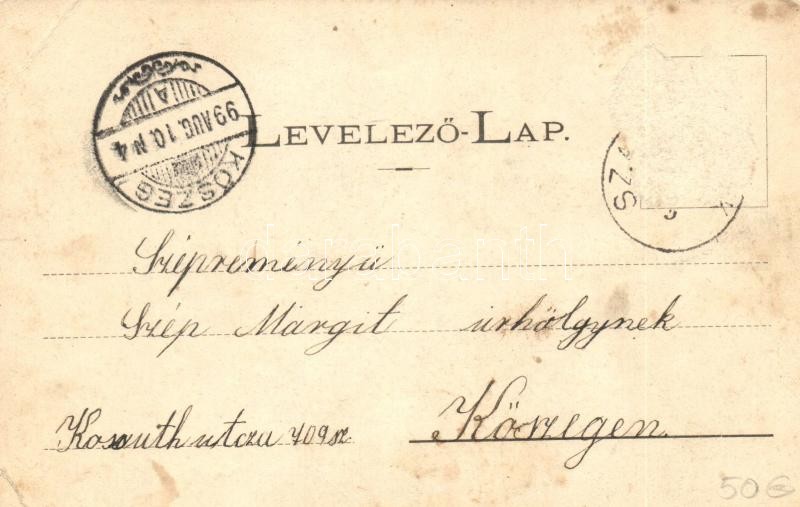 LEVELEZŐ-LAP.
99 AUG. 10. N 4
KŐSZEG
SZ.
Szépreményü
Szép Margit úrhölgynek
Kossuth utcza 709 sz.
Kőszegen.
50